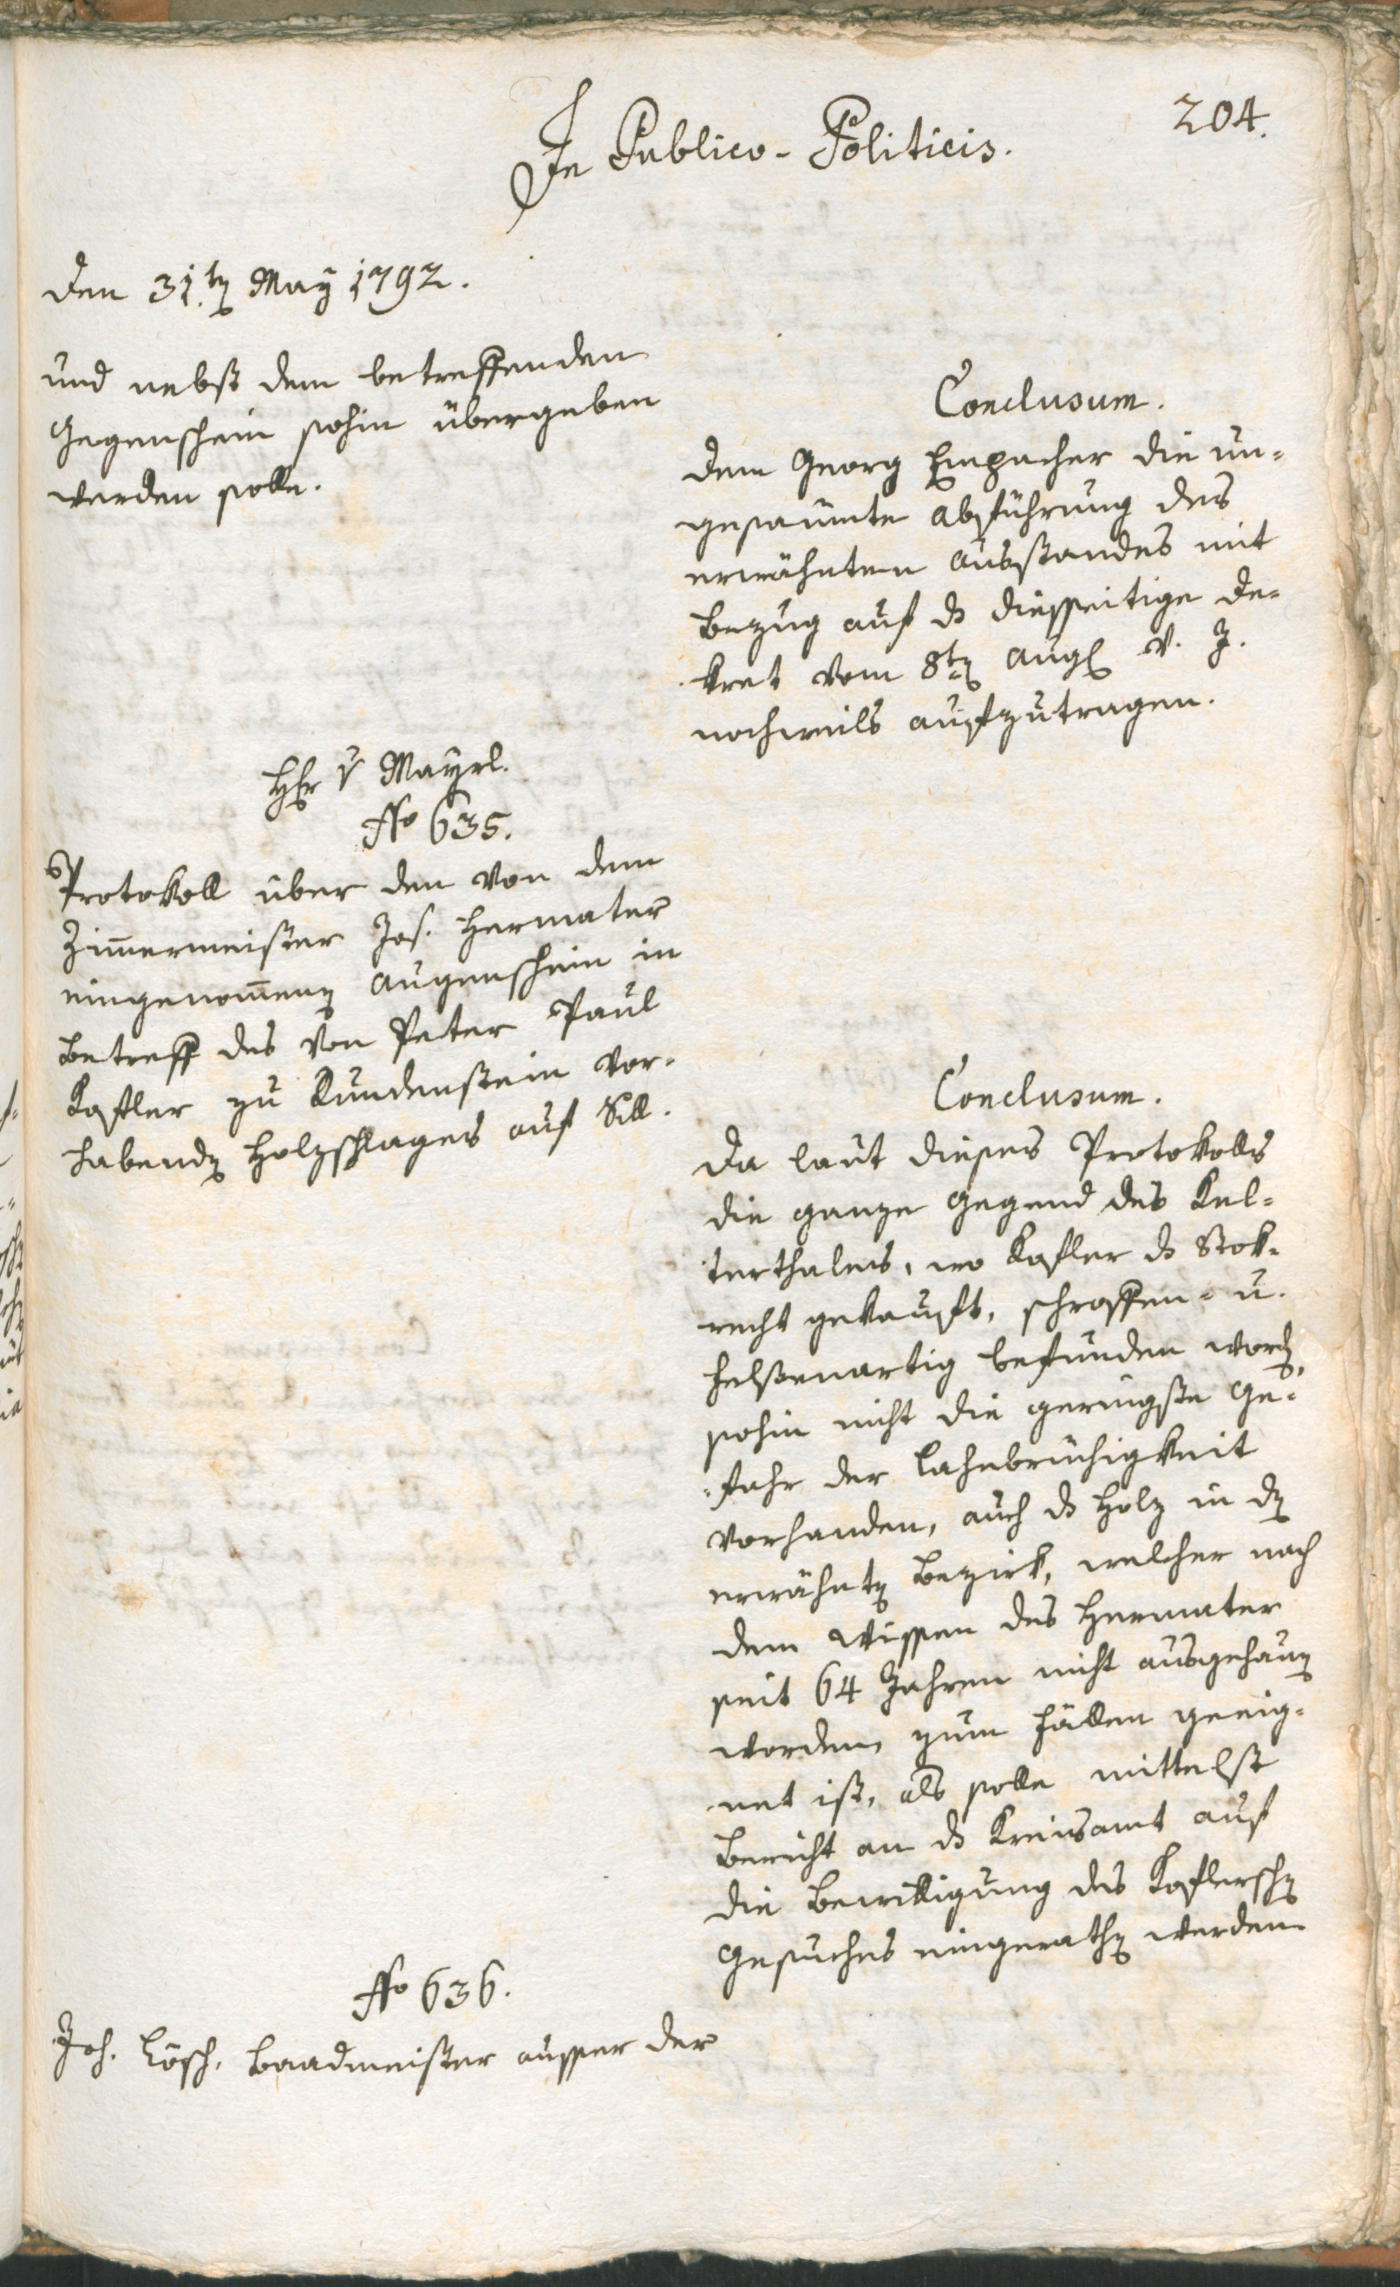 204.
In Publico-Politicis.
Den 31.ten May 1792.
und nebst dem betreffenden
Gegenschein sohin übergeben
werden solle.
Conclusum.
Dem Georg Empacher die un-
gesaumte Abführung des
erwähnten Ausstandes mit
Bezug auf ds diesseitige De-
kret vom 8ten Aug v. J.
nochmals aufzutragen.
Hr v Mayrl.
No 635.
Protokoll über den von dem
Zimmermeister Jos. Hermater
eingenommenen Augenschein in
Betreff des von Peter Paul
Kofler zu Rundenstein vor-
habenden Holzschlages auf Sill.
Conclusum.
Da laut dieses Protokolls
die ganze Gegend des Kel-
terthales, wo Kofler ds Stok-
recht gekauft, schroffen- u.
felsenartig befunden worden,
sohin nicht die geringste Ge-
fahr der Lahnbrüchigkeit
vorhanden, auch ds Holz in dem
erwähnten Bezirk, welcher nach
dem Wissen des Hermater
seit 64 Jahren nicht ausgehauen
worden, zum Fällen geeig-
net ist, als solle mittelst
Bericht an ds Kreisamt auf
die Bewilligung des Koflerschen
Gesuches eingerathen werden
No 636.
Joh. Lösch, Baadmeister ausser der